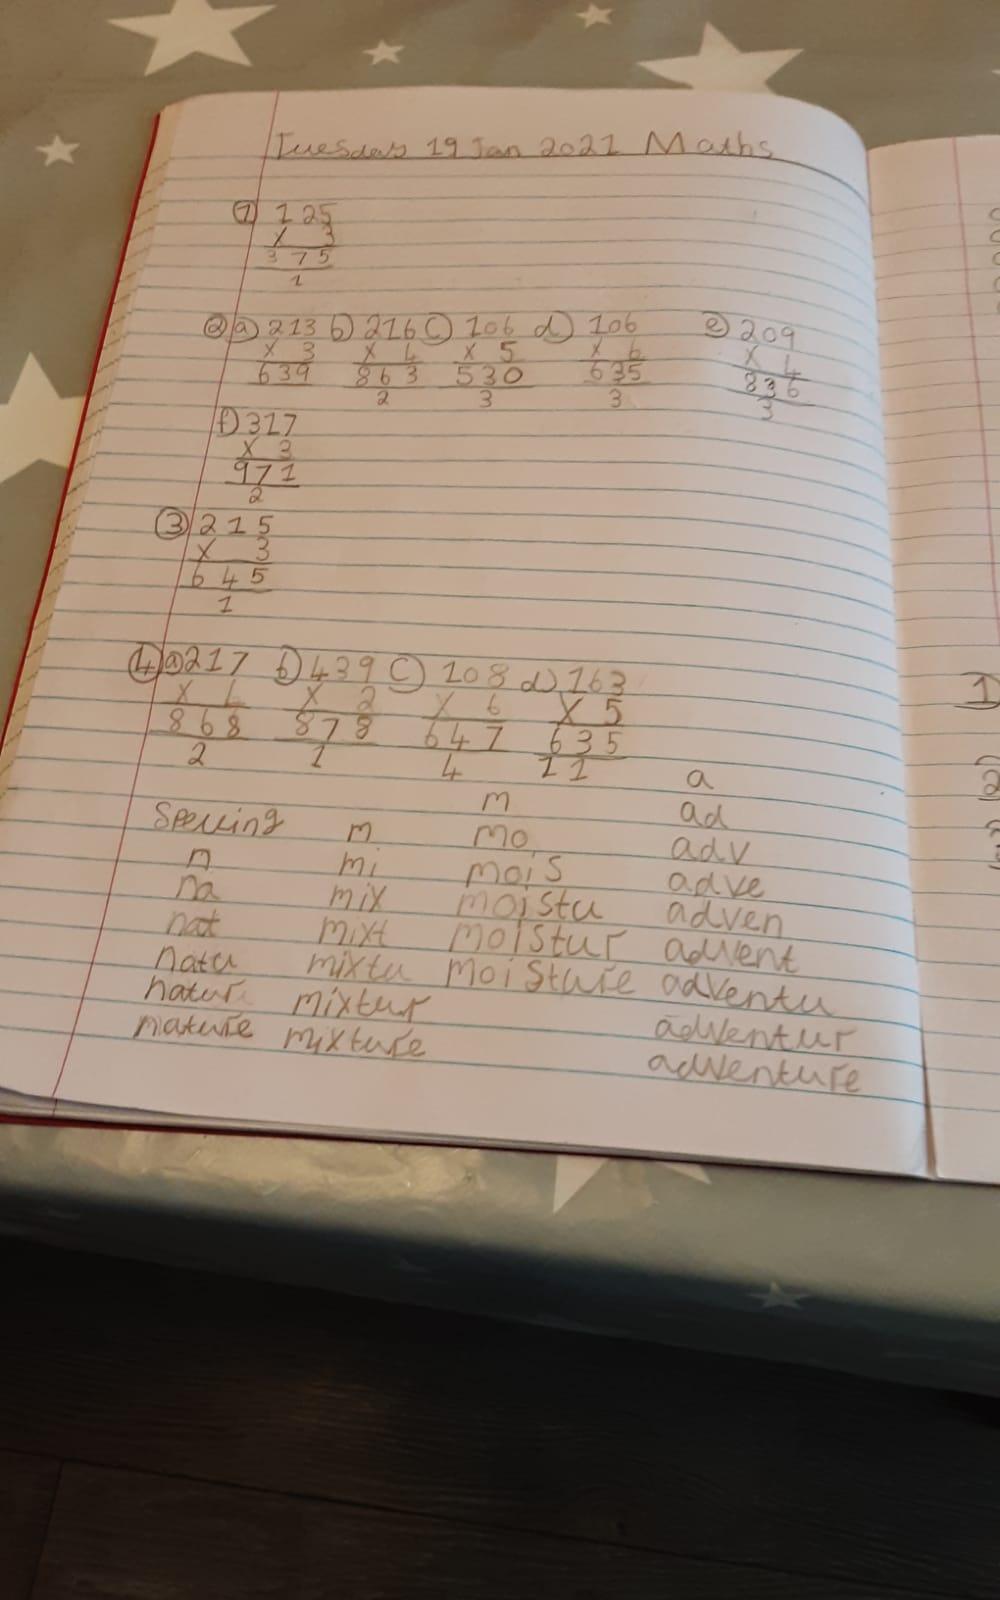 Tuesday 19 Jan 2021 Maths
① 125
x 3
375
1
② a) 213 b) 216 c) 106 d) 106 e) 209
x 3 x 4 x 5 x 6 x 4
639 863 530 635 836
2 3 3 3
f) 317
x 3
971
2
③ 215
x 3
645
1
④ a) 217 b) 439 c) 108 d) 163
x 4 x 2 x 6 x 5
868 878 647 635
2 1 4 11
Spelling
n
na
nat
natu
natur
nature
m
mi
mix
mixt
mixtu
mixtur
mixture
m
mo
mois
moistu
moistur
moisture
a
ad
adv
adve
adven
advent
adventu
adventur
adventure
1)